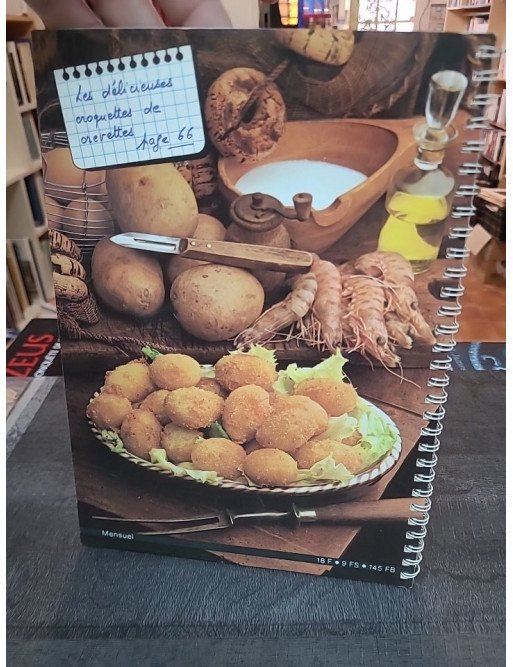 Les délicieuses
croquettes de
crevettes page 66
ZEUS
Mensuel
18 F • 9 FS • 145 FB